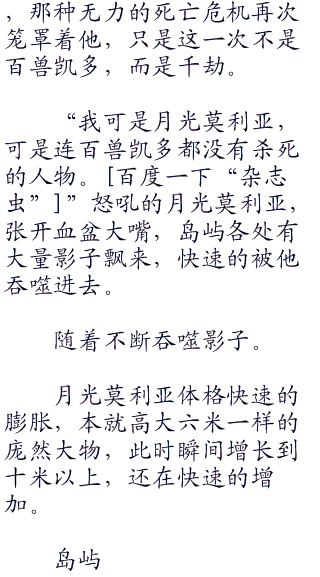 ，那种无力的死亡危机再次
笼罩着他，只是这一次不是
百兽凯多，而是千劫。
“我可是月光莫利亚，
可是连百兽凯多都没有杀死
的人物。[百度一下“杂志
虫”]”怒吼的月光莫利亚，
张开血盆大嘴，岛屿各处有
大量影子飘来，快速的被他
吞噬进去。
随着不断吞噬影子。
月光莫利亚体格快速的
膨胀，本就高大六米一样的
庞然大物，此时瞬间增长到
十米以上，还在快速的增
加。
岛屿